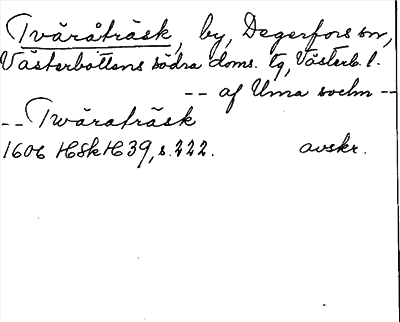 Tväråträsk, by, Degerfors sn,
Västerbottens södra doms. tg, Västerb. l.
-- af Uma sochn --
-- Twäraträsk
1606 HSkH 39, s. 222. avskr.